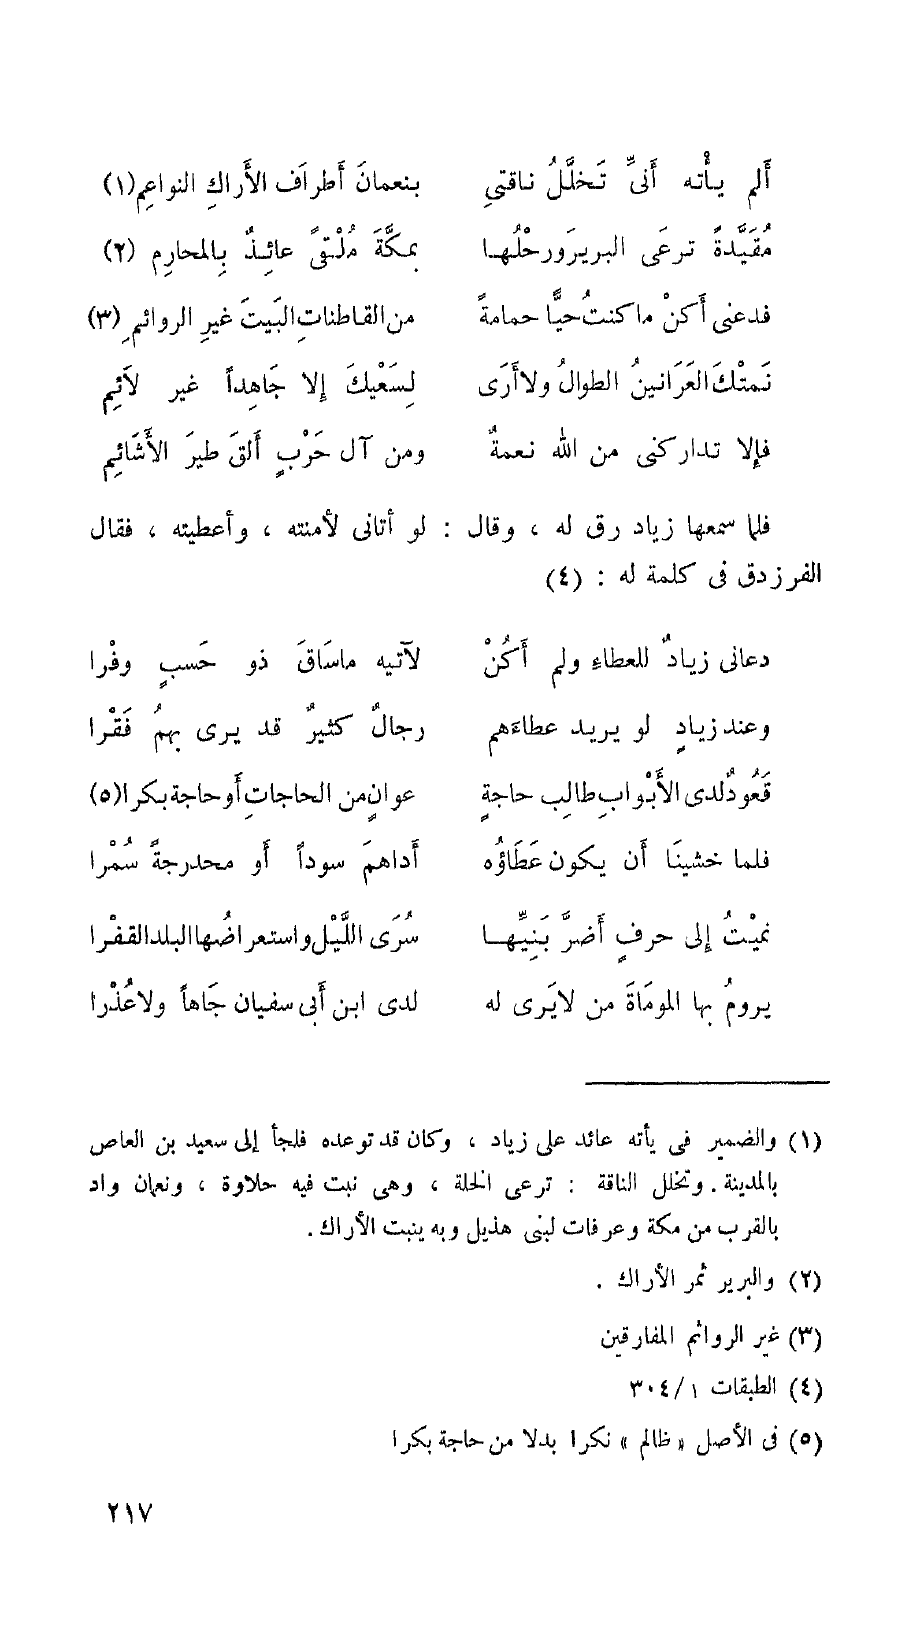 ألم يأْته أَنىِّ تَخلَّلُ ناقتىِ بنعمانَ أطرافَ الأَراكِ النواعِم(١)
مُقَيَّدةً ترعَى البريرَورحْلُها بمكَّةَ مُلْتقىً عائِذٌ بِالمحارِم (٢)
فدعنى أَكنْ ماكنتُ حيًّا حمامةً من القاطناتِ البَيتَ غيرِ الروائمِ (٣)
نَمتْكَ العَرَانينُ الطوالُ ولا أَرَى لِسَعْيكَ إلا جَاهِداً غير لاَئِم
فإلا تداركنى من الله نعمةٌ ومن آل حَرْبٍ أَلقَ طيرَ الأَشَائِم
فلما سمعها زياد رق له ، وقال : لو أتانى لأمنته ، وأعطيته ، فقال
الفرزدق فى كلمة له : (٤)
دعانى زيادٌ للعطاء ولم أَكُنْ لآتيه ماسَاقَ ذو حَسبٍ وفْرا
وعند زيادٍ لو يريد عطاءهم رجالٌ كثيرٌ قد يرى بهمُ فَقْرا
قَعُودٌ لدى الأَبْوابِ طالِب حاجةٍ عوانٍ من الحاجاتِ أَو حاجة بكرا(٥)
فلما خشينَا أن يكون عَطَاؤُه أَداهمَ سوداً أَو محدرجةً سُمْرا
نميْتُ إلى حرفٍ أَضرَّ بَنِيِّها سُرَى اللَّيْل واستعراضُها البلد القفْرا
يرومُ بها المومَاةَ من لايَرى له لدى ابن أَبى سفيان جَاهاً ولا عُذْرا
(١) والضمير فى يأته عائد على زياد ، وكان قد توعده فلجأ إلى سعيد بن العاص
بالمدينة . وتخلل الناقة : ترعى الخلة ، وهى نبت فيه حلاوة ، ونعمان واد
بالقرب من مكة وعرفات لبنى هذيل وبه ينبت الأراك .
(٢) والبرير ثمر الأراك .
(٣) غير الروائم المفارقين
(٤) الطبقات ١/ ٣٠٤
(٥) فى الأصل « ظالم » نكرا بدلا من حاجة بكرا
٢١٧